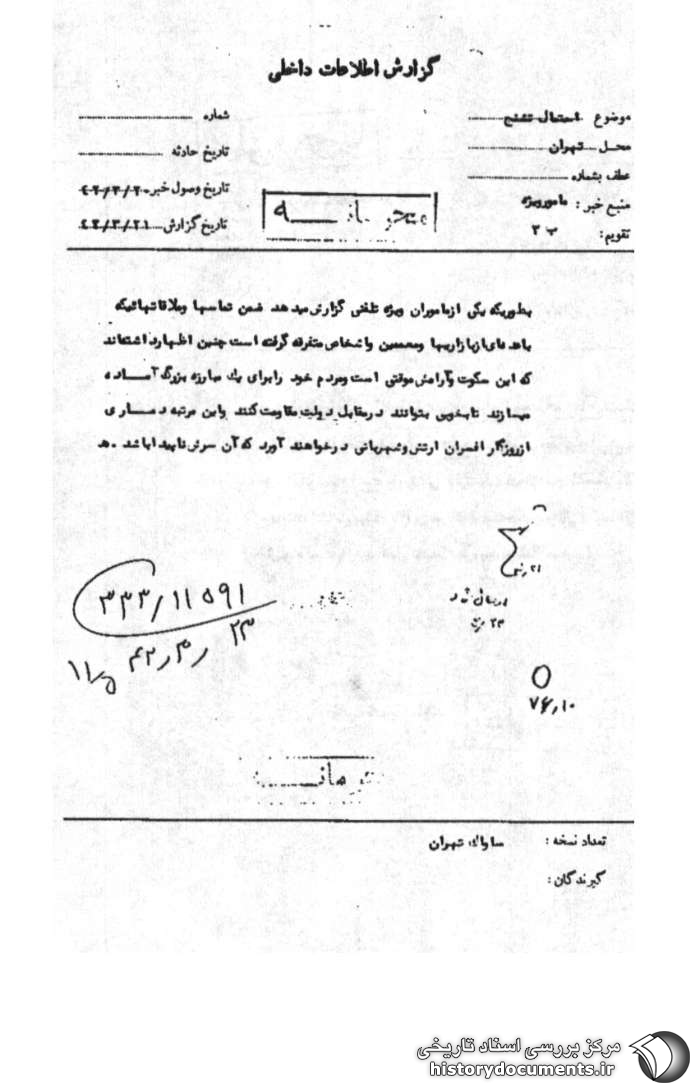 گزارش اطلاعات داخلی
موضوع احتمال تشنج
محل تهران
عطف بشماره
منبع خبر : مامور ویژه
تقویم : ب ۲
شماره
تاریخ حادثه
تاریخ وصول خبر ۴۲/۳/۲۰
تاریخ گزارش ۴۲/۳/۲۱
محرمانه
بطوریکه یکی از ماموران ویژه تلفنی گزارش میدهد ضمن تماسها وملاقاتهائیکه
باعده‌ای ازبازاریها ومعممین واشخاص متفرقه گرفته است چنین اظهارداشته‌اند
که این سکوت وآرامش موقتی است ومردم خود رابرای یك مبارزه بزرگ آمــاده
میسازند تابخوبی بتوانند درمقابل دولت مقاومت کنند واین مرتبه دمــاری
ازروزگار افسران ارتش وشهربانی درخواهند آورد که آن سرش ناپیدا باشد . ه
۳۳۳/۱۱۵۹۱
۴۲٫۳٫۲۳
۱۱/۵
ارسال شد
۷۶٫۱۰
تعداد نسخه :
ساواك تهران
گیرندگان :
مرکز بررسی اسناد تاریخی
historydocuments.ir